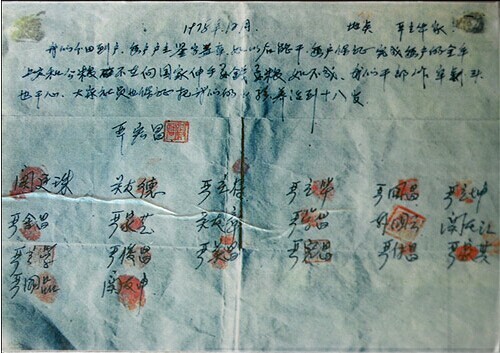 1978年12月. 地点 严立华家
我们分田到户.每户户主签字盖章.如以后能干.每户保证完成每户的全年
上交和公粮.不在向国家伸手要钱要粮.如不成.我们干部作牢剎头
也干心.大家社员也保证把我们的小孩养活到十八岁.
严宏昌
关廷珠 关友德 严立符 严立华 严国昌 严立坤
严金昌 严家芝 关友章 严学昌 韩国云 关友江
严立学 严俊昌 严美昌 严宏昌 严付昌 严家其
严国品 关友申